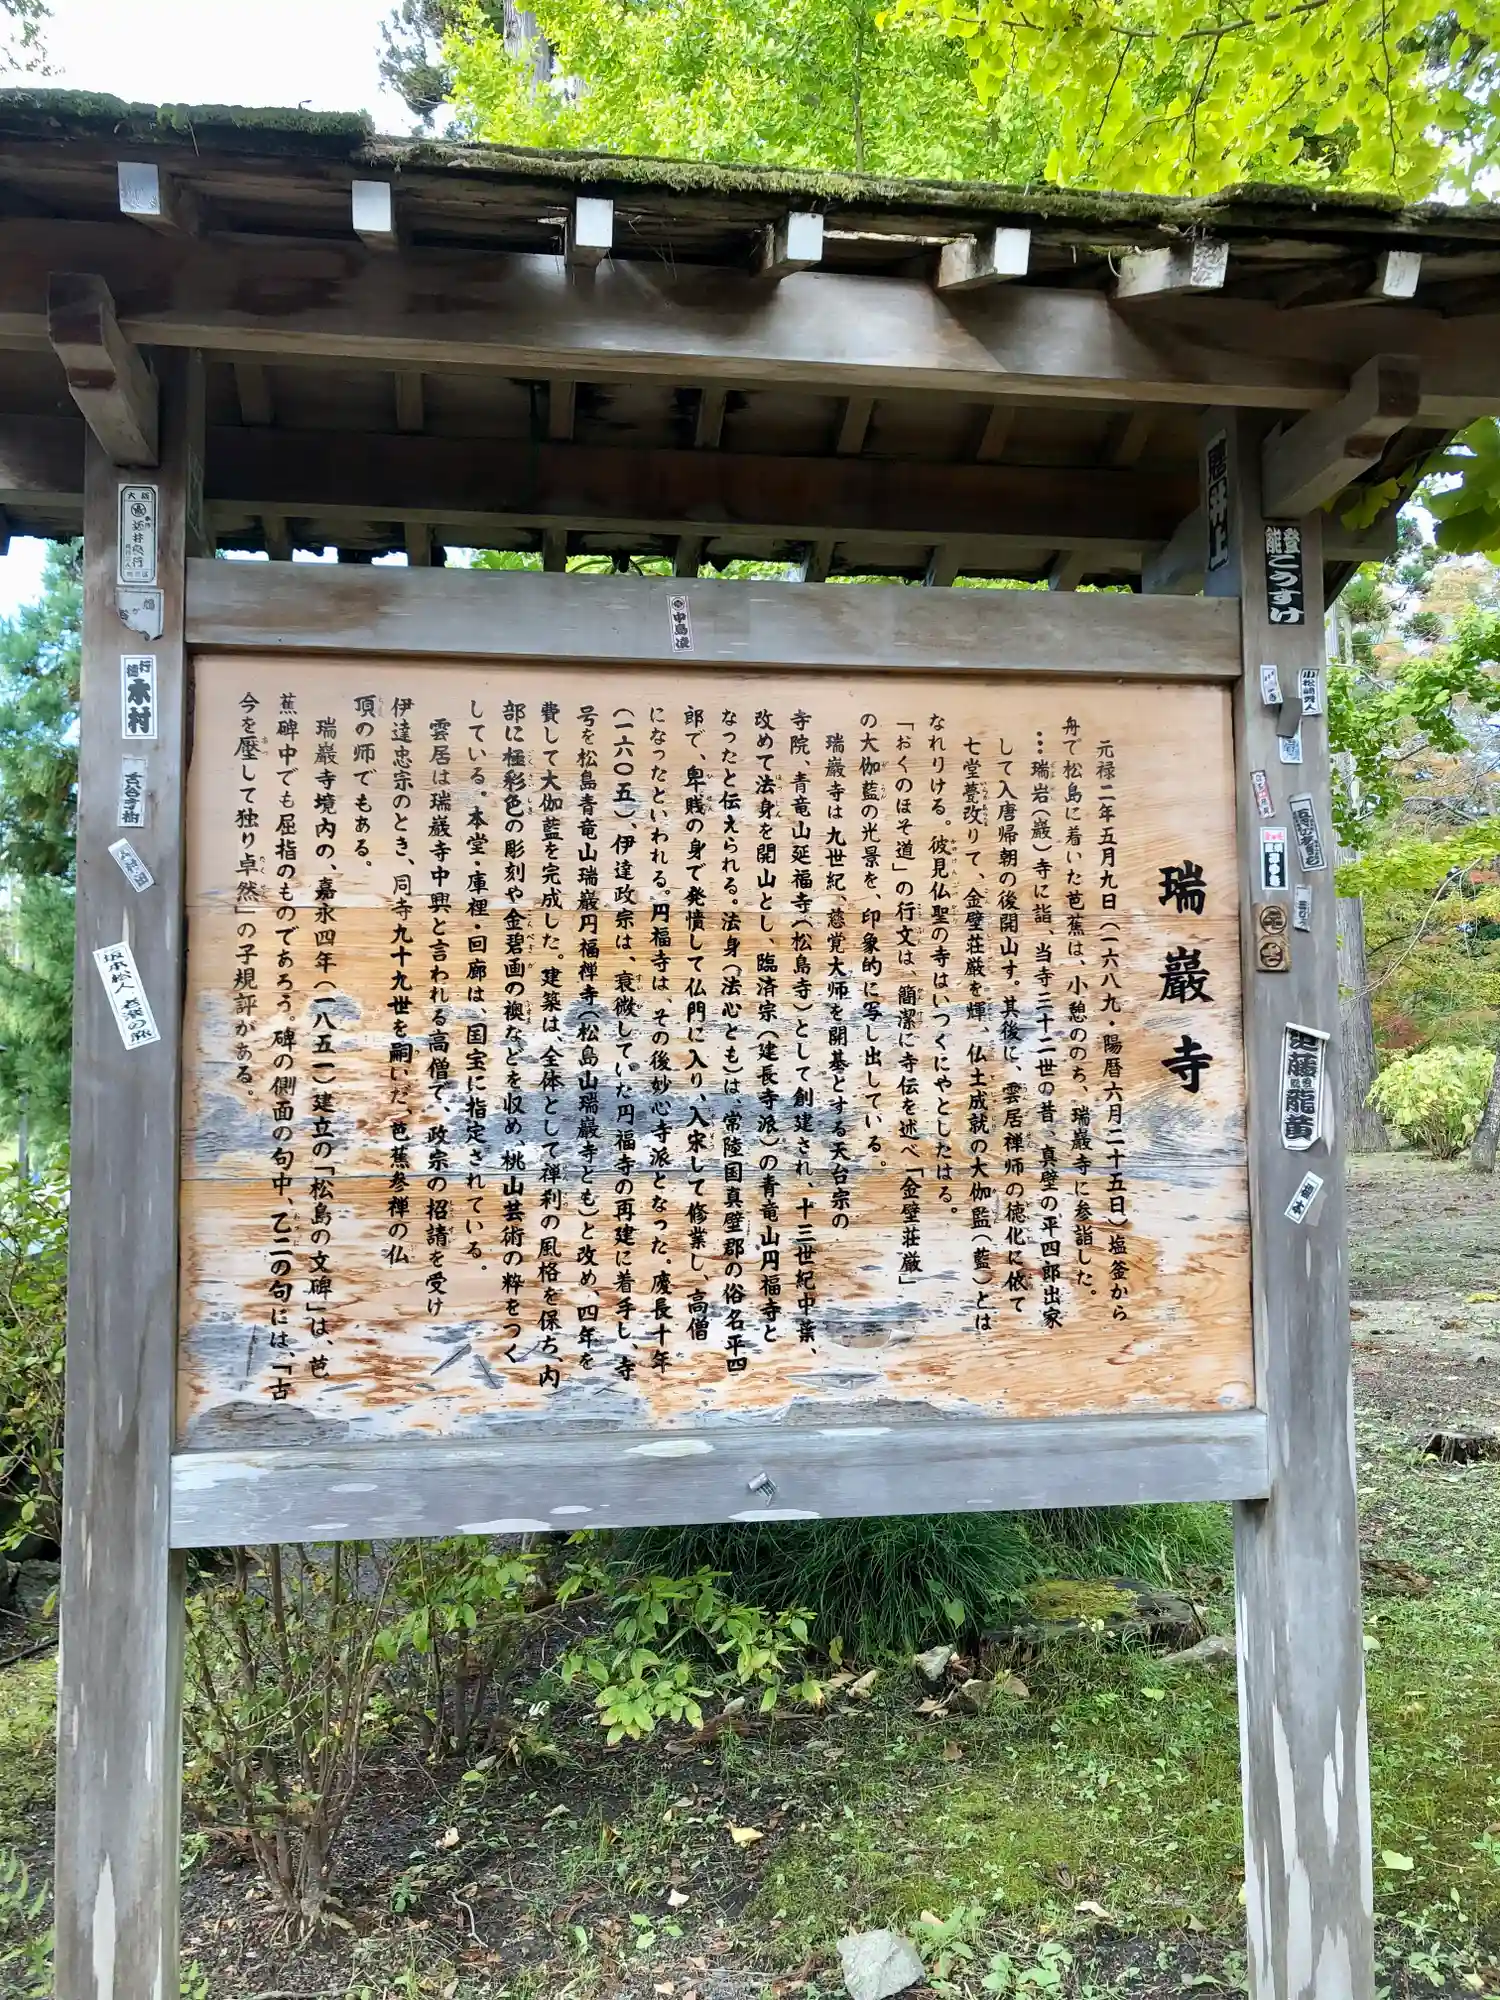 瑞巖寺
元禄二年五月九日(一六八九・陽暦六月二十五日)塩釜から
舟で松島に着いた芭蕉は、小憩ののち、瑞巖寺に参詣した。
…瑞岩(巌)寺に詣、当寺三十二世の昔、真壁の平四郎出家
して入唐帰朝の後開山す。其後に、雲居禅師の徳化に依て
七堂甍改りて、金壁荘厳を輝、仏土成就の大伽監(藍)とは
なれりける。彼見仏聖の寺はいづくにやとしたはる。
「おくのほそ道」の行文は、簡潔に寺伝を述べ「金壁荘厳」
の大伽藍の光景を、印象的に写し出している。
瑞巖寺は九世紀、慈覚大师を開基とする天台宗の
寺院、青竜山延福寺(松島寺)として創建され、十三世紀中葉、
改めて法身を開山とし、臨済宗(建長寺派)の青竜山円福寺と
なったと伝えられる。法身(法心とも)は、常陸国真壁郡の俗名平四
郎で、卑賎の身で発憤して仏門に入り、入宋して修業し、高僧
になったといわれる。円福寺は、その後妙心寺派となった。慶長十年
(一六〇五)、伊達政宗は、衰微していた円福寺の再建に着手し、寺
号を松島青竜山瑞巌円福禅寺(松島山瑞巌寺とも)と改め、四年を
費して大伽藍を完成した。建築は、全体として禅刹の風格を保ち、内
部に極彩色の彫刻や金碧画の襖などを収め、桃山芸術の粋をつく
している。本堂・庫裡・回廊は、国宝に指定されている。
雲居は瑞巖寺中興と言われる高僧で、政宗の招請を受け
伊達忠宗のとき、同寺九十九世を嗣いだ、芭蕉参禅の仏
頂の师でもある。
瑞巖寺境内の、嘉永四年(一八五一)建立の「松島の文碑」は、芭
蕉碑中でも屈指のものであろう。碑の側面の句中、乙二の句には、「古
今を壓して独り卓然」の子規評がある。
中島凌
木村
井上
能登こうすけ
坂本松人